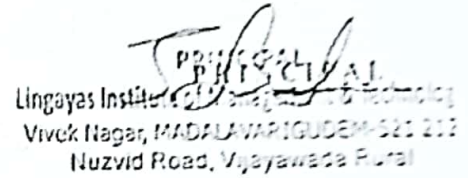 PRINCIPAL
Lingayas Institute of Management & Technolog
Vivek Nagar, MADALAVARIGUDEM-521 212
Nuzvid Road, Vijayawada Rural